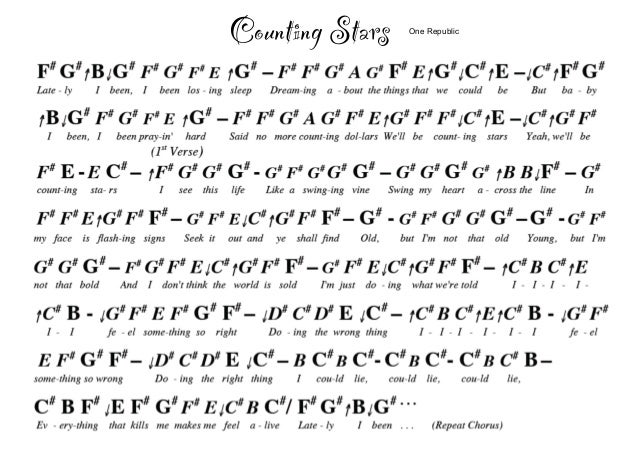 Counting Stars One Republic
F# G# ↑B↓G# F# G# F# E ↑G# – F# F# G# A G# F# E↑G#↓C#↑E –↓C#↑F# G#
Late - ly I been, I been los - ing sleep Dream-ing a - bout the things that we could be But ba - by
↑B↓G# F# G# F# E ↑G# – F# F# G# A G# F# E↑G# F# F#↓C#↑E –↓C#↑G# F#
I been, I been pray-in' hard Said no more count-ing dol-lars We'll be count- ing stars Yeah, we'll be
(1st Verse)
F# E - E C# – ↑F# G# G# G# - G# F# G#G# G# – G# G# G# G# ↑B B↓F# – G#
count-ing sta- rs I see this life Like a swing-ing vine Swing my heart a - cross the line In
F# F# E↑G# F# F# – G# F# E↓C#↑G# F# F# – G# - G# F# G# G# G# – G# - G# F#
my face is flash-ing signs Seek it out and ye shall find Old, but I'm not that old Young, but I'm
G# G# G# – F# G# F# E↓C#↑G# F# F# – G# F# E↓C#↑G# F# F# – ↑C# B C#↑E
not that bold And I don't think the world is sold I'm just do - ing what we're told I - I - I - I -
↑C# B - ↓G# F# E F# G# F# – ↓D# C# D# E ↓C# – ↑C# B C#↑E↑C# B - ↓G# F#
I - I fe - el some-thing so right Do - ing the wrong thing I - I - I - I - I - I fe - el
E F# G# F# – ↓D# C# D# E ↓C# – B C# B C#- C# B C#- C# B C# B –
some-thing so wrong Do - ing the right thing I cou-ld lie, cou-ld lie, cou-ld lie,
C# B F# ↓E F# G# F# E↓C# B C#/ F# G#↑B↓G# ···
Ev - ery-thing that kills me makes me feel a - live Late - ly I been ... (Repeat Chorus)